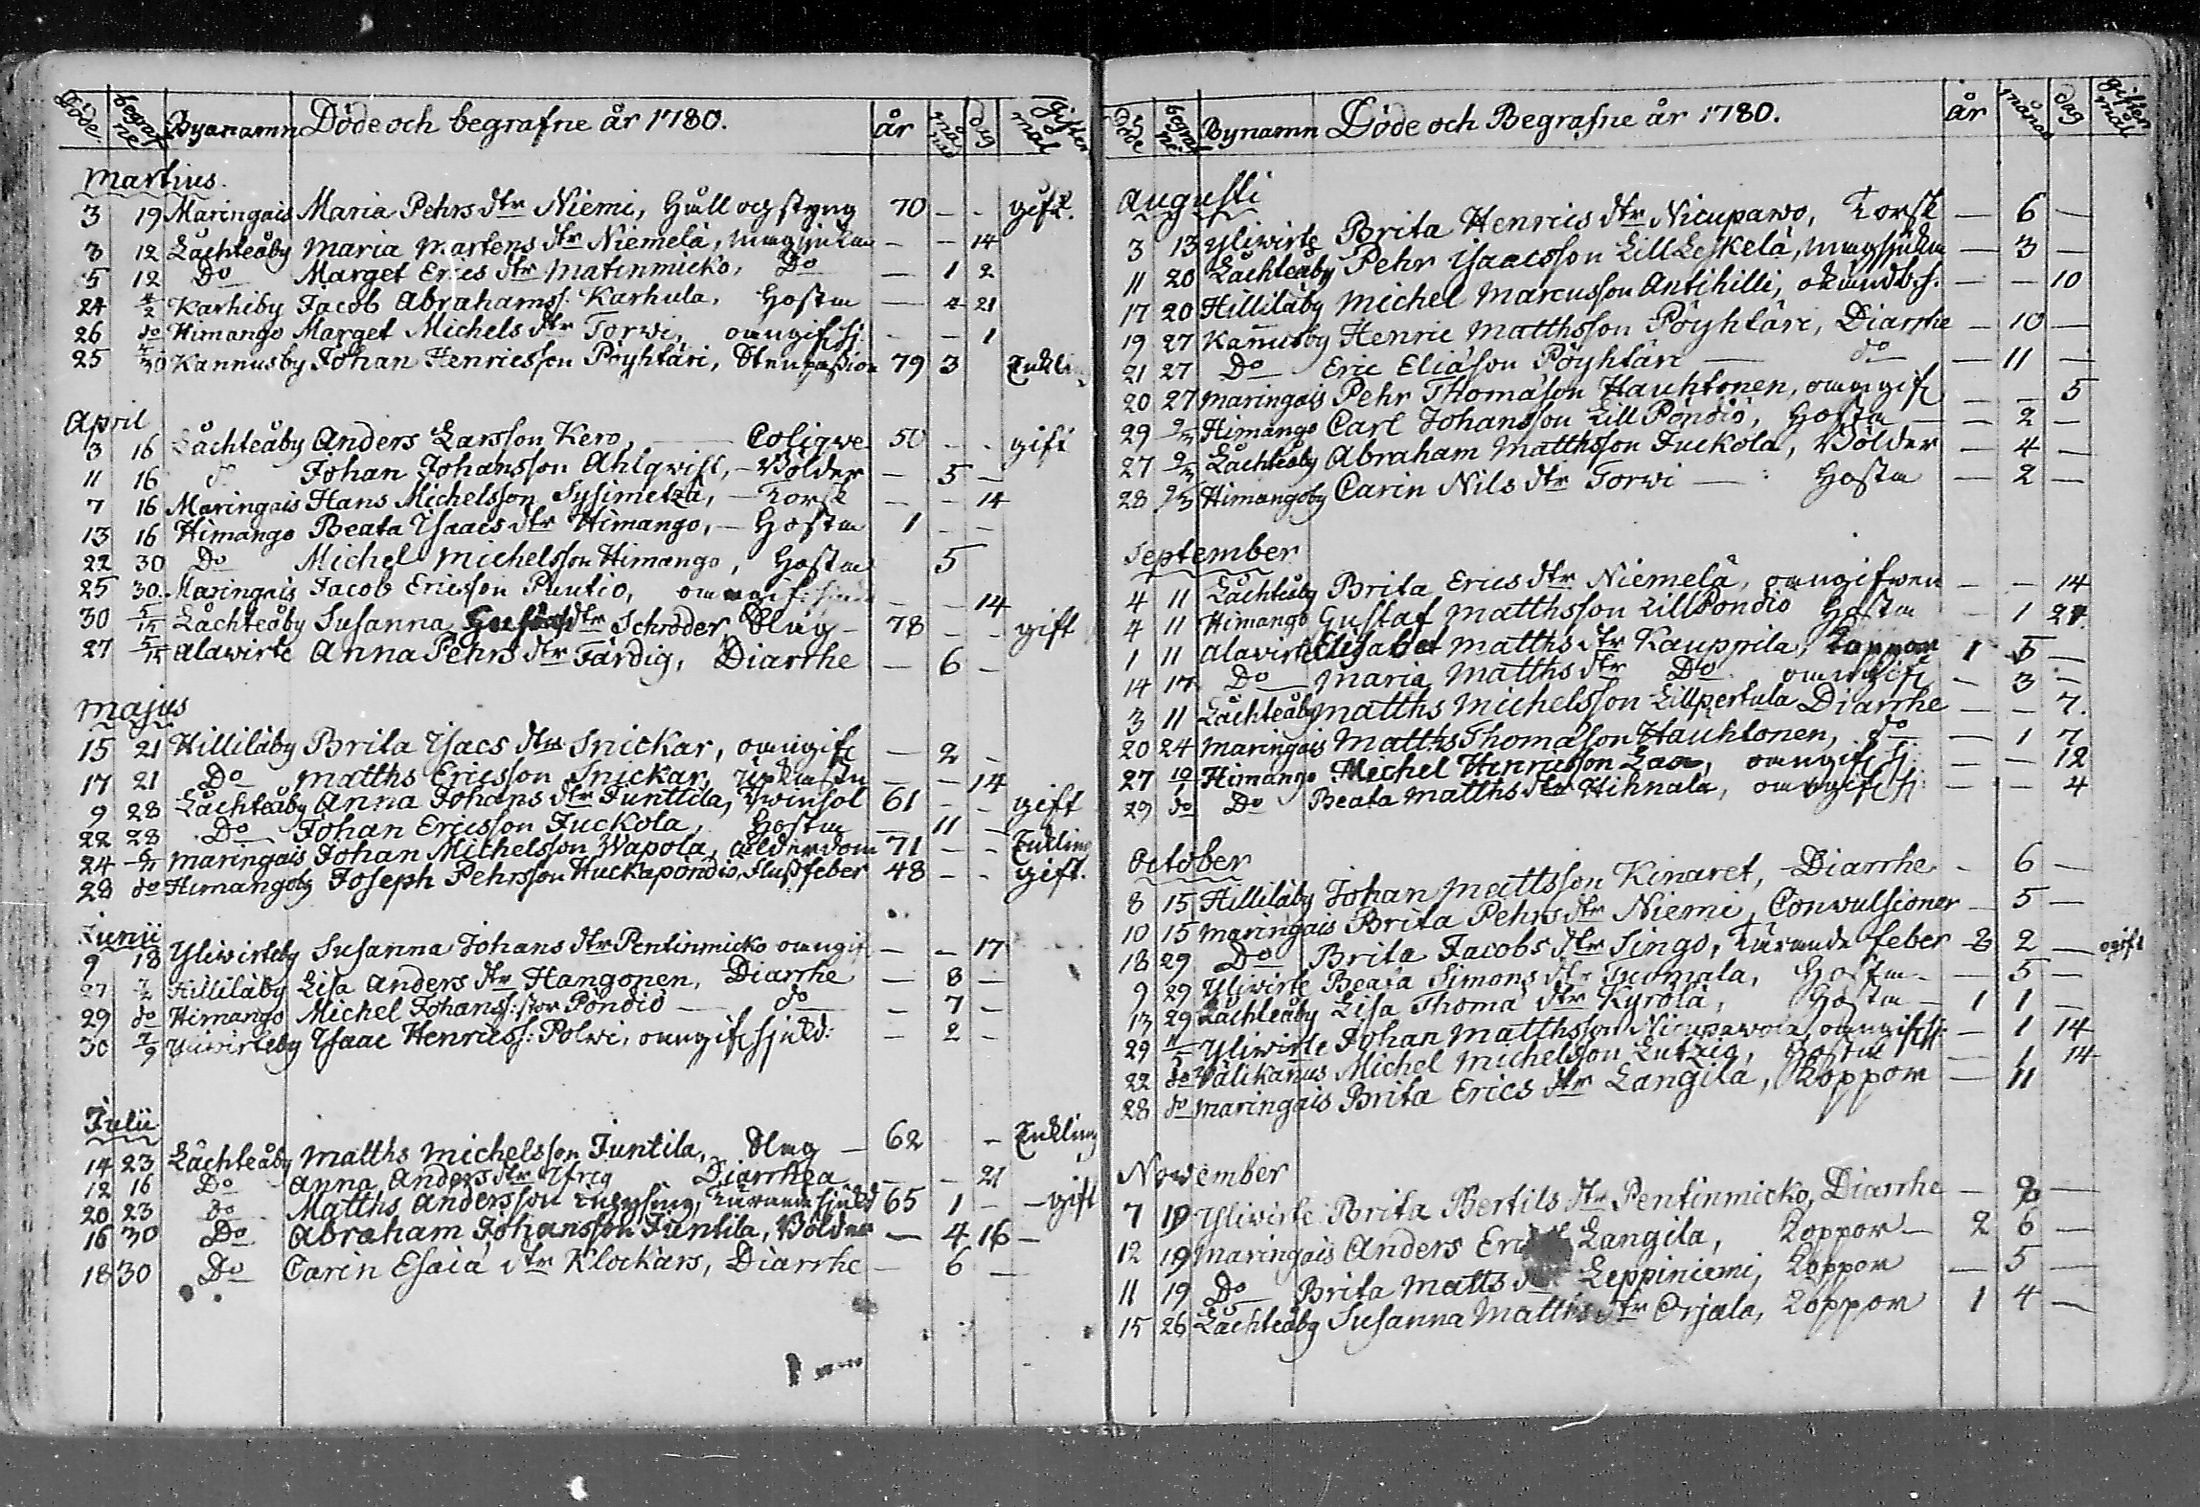 Döde. begrafne Byanamn Döde och begrafne år 1780. år månad dag giftermål
Martius.
3 19 Maringais Maria Pehrs dtr Niemi, Håll och styng 70 - - gift.
3 12 Låchteåby Maria Martens dtr Niemelä, - - 14
5 12 Do Marget Erics dtr Matinmicko, Do - 1 2
24 4/2 Karhiby Jacob Abrahamss: Karhula, Hosta - 4 21
26 do Himango Marget Michels dtr Torwi, oangifsj: - - 1
25 30 Kannusby Johan Henricsson Pöyhtäri, Stenpassion 79 3 Enkling
April
3 16 Låchteåby Anders Larsson Kero, Coliqve 50 - - gift
11 16 do Johan Johansson Ahlqvist, - Bölder - 5 -
7 16 Maringais Hans Michelsson Sysimetzä, - Torsk - - 14
13 16 Himango Beata Isaacs dtr Himango, - Hosta 1 - -
22 30 Do Michel Michelsson Himango, Hosta 5
25 30 Maringais Jacob Ericsson Puutio, oangif: - - 14
30 5/15 Låchteåby Susanna dtr Schröder, Slag - 78 - - gift
27 5/15 Alawirte Anna Pehrs dtr Färdig, Diarrhe - 6 -
Majus
15 21 Hillilåby Brita Isacs dtr Snickar, oangif - 2 -
17 21 Do Matths Ericsson Snickar, - - 14
9 28 Låchteåby Anna Johans dtr Juntila, Twinsot 61 - - gift
22 28 Do Johan Ericsson Juckola, Hosta - 11 -
24 6/11 Maringais Johan Michelsson Wapola, ålderdom 71 - - Enkling
28 do Himangoby Joseph Pehrsson Huckapöndiö, Flussfeber 48 - - gift.
Junii
9 18 Yliwirteby Susanna Johans dtr Pentinmicko oangif - - 17
27 7/2 Hillilåby Lisa Anders dtr Hangonen, Diarrhe - 8 -
29 do Himango Michel Johanss: stor Pöndiö - do - 7 -
30 7/9 Yliwirteby Isaac Henricss: Polwi, oangif sjukd: - 2 -
Julii
14 23 Låchteåby Matths Michelsson Juntila, Slag - 62 - Enkling
12 16 Do Anna Anders dtr Diarrhea - - 21
20 23 do Matths Andersson Tärande sjukd 65 1 - gift
16 30 Do Abraham Johansson Juntila, Bölder - 4 16 -
18 30 Do Carin Esaiä dtr Klockars, Diarrhe - 6 -
Döde begrafne Bynamn Döde och Begrafne år 1780. år månad dag giftermål
Augusti
3 13 Yliwirte Brita Henrics dtr Nicupawo, Torsk - 6 -
11 20 Låchteåby Pehr Isaacsson Lill Leskelä, - 3 -
17 20 Hillilåby Michel Marcusson Antihilli, - - 10
19 27 Kannusby Henric Matthsson Pöyhtäri, Diarrhe - 10 -
21 27 Do Eric Eliäson Pöyhtäri - do - 11 -
20 27 Maringais Pehr Thomäson Hauhtonen, oangif - - 5
29 9/3 Himango Carl Johansson Lill Pöndiö, Hosta - 2 -
27 9/3 Låchteåby Abraham Matthsson Juckola, Bölder - 4 -
28 9/3 Himangoby Carin Nils dtr Torwi - Hosta - 2 -
September
4 11 Låchteåby Brita Erics dtr Niemelä, oangifwen - - 14
4 11 Himango Gustaf Matthsson Lill Pöndiö Hosta - 1 21.
1 11 Alawirte Elisabet Matths dtr Kauppila, Koppor 1 5 -
14 17 Do Maria Matths dtr Do oangif - 3 -
3 11 Låchteåby Matths Michelsson Lillpertula Diarrhe - - 7.
20 24 Maringais Matths Thomäson Hauhtonen, do - 1 7
27 10/1 Himango Michel Henricsson Laa, oangif sj: - - 12
29 do Do Beata Matths dtr Hihnala, oangif sj: - - 4
October
8 15 Hillilåby Johan Mattsson Kinaret, Diarrhe - 6 -
10 15 Maringais Brita Pehrs dtr Niemi, Convulsioner - 5 -
18 29 Do Brita Jacobs dtr Singo, Tärande feber 2 - ogift
9 29 Yliwirte Beata Simons dtr Tuomala, Hosta - - 5 -
13 29 Låchteåby Lisa Thomä dtr Kyrölä, Hosta - 1 1 -
29 11/5 Yliwirte Johan Matthsson Nicupawola, oangif sj: - 1 14
22 do Wälikanus Michel Michelsson Lutzig, Hosta - 1 14
28 do Maringais Brita Erics dtr Langila, Koppor - 11
November
7 19 Yliwirte Brita Bertils dtr Pentinmicko, Diarrhe - 9 -
12 19 Maringais Anders Langila, Koppor - 2 6 -
11 19 Do Brita Matts Leppiniemi, Koppor - 5 -
15 26 Låchteåby Susanna Matths dtr Orjala, Koppor 1 4 -